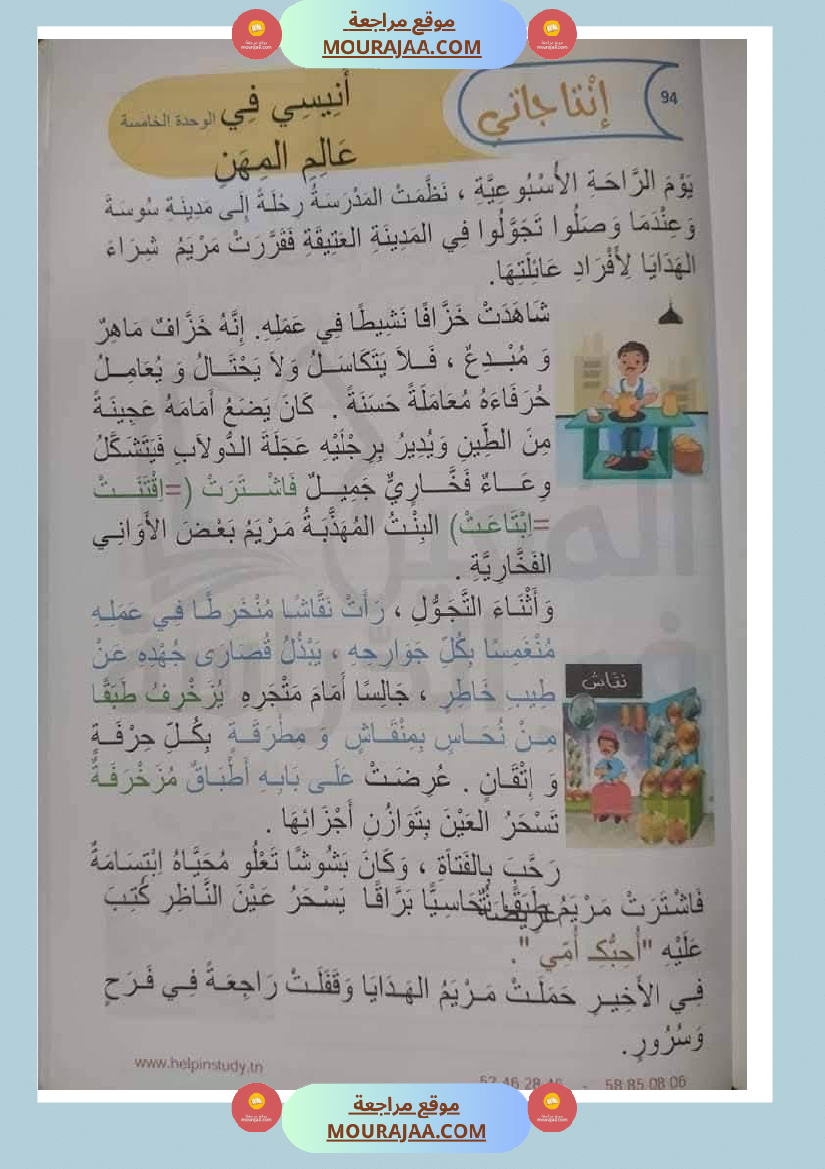 موقع مراجعة
MOURAJAA.COM
94
إنْتاجاتي
أَنِيسِي فِي
الوحدة الخامسة
عَالِمِ المِهَنِ
يَوْمَ الرَّاحَةِ الأُسْبُوعِيَّةِ ، نَظَّمَتْ المَدْرَسَةُ رِحْلَةً إِلَى مَدِينَةِ سُوسَةَ
وَعِنْدَمَا وَصَلُوا تَجَوَّلُوا فِي المَدِينَةِ العَتِيقَةِ فَقَرَّرَتْ مَرْيَمُ شِرَاءَ
الهَدَايَا لِأَفْرَادِ عَائِلَتِهَا.
شَاهَدَتْ خَزَّافًا نَشِيطًا فِي عَمَلِهِ. إِنَّهُ خَزَّافٌ مَاهِرٌ
وَ مُبْدِعٌ ، فَلاَ يَتَكَاسَلُ وَلاَ يَحْتَالُ وَ يُعَامِلُ
حُرَفَاءَهُ مُعَامَلَةً حَسَنَةً . كَانَ يَضَعُ أَمَامَهُ عَجِينَةً
مِنَ الطِّينِ وَيُدِيرُ بِرِجْلَيْهِ عَجَلَةَ الدُّولاَبِ فَيَتَشَكَّلُ
وِعَاءٌ فَخَّارِيٌّ جَمِيلٌ فَاشْتَرَتْ (=اِقْتَنَتْ
=اِبْتَاعَتْ) البِنْتُ المُهَذَّبَةُ مَرْيَمُ بَعْضَ الأَوَانِي
الفَخَّارِيَّةِ .
وَأَثْنَاءَ التَّجَوُّلِ ، رَأَتْ نَقَّاشًا مُنْخَرِطًا فِي عَمَلِهِ
مُنْغَمِسًا بِكُلِّ جَوَارِحِهِ ، يَبْذُلُ قُصَارَى جُهْدِهِ عَنْ
طِيبِ خَاطِرٍ ، جَالِسًا أَمَامَ مَتْجَرِهِ يُزَخْرِفُ طَبَقًا
نقاش
مِنْ نُحَاسٍ بِمِنْقَاشٍ وَ مِطْرَقَةٍ بِكُلِّ حِرْفَةٍ
وَ إِتْقَانٍ . عُرِضَتْ عَلَى بَابِهِ أَطْبَاقٌ مُزَخْرَفَةٌ
تَسْحَرُ العَيْنَ بِتَوَازُنِ أَجْزَائِهَا .
رَحَّبَ بِالفَتَاةِ ، وَكَانَ بَشُوشًا تَعْلُو مُحَيَّاهُ اِبْتِسَامَةٌ
عَرِيضَةٌ
فَاشْتَرَتْ مَرْيَمُ طَبَقًا نُحَاسِيًّا بَرَّاقًا يَسْحَرُ عَيْنَ النَّاظِرِ كُتِبَ
عَلَيْهِ "أُحِبُّكِ أُمِّي ".
فِي الأَخِيرِ حَمَلَتْ مَرْيَمُ الهَدَايَا وَقَفَلَتْ رَاجِعَةً فِي فَرَحٍ
وَسُرُورٍ.
www.helpinstudy.tn
58 85 08 06
موقع مراجعة
MOURAJAA.COM